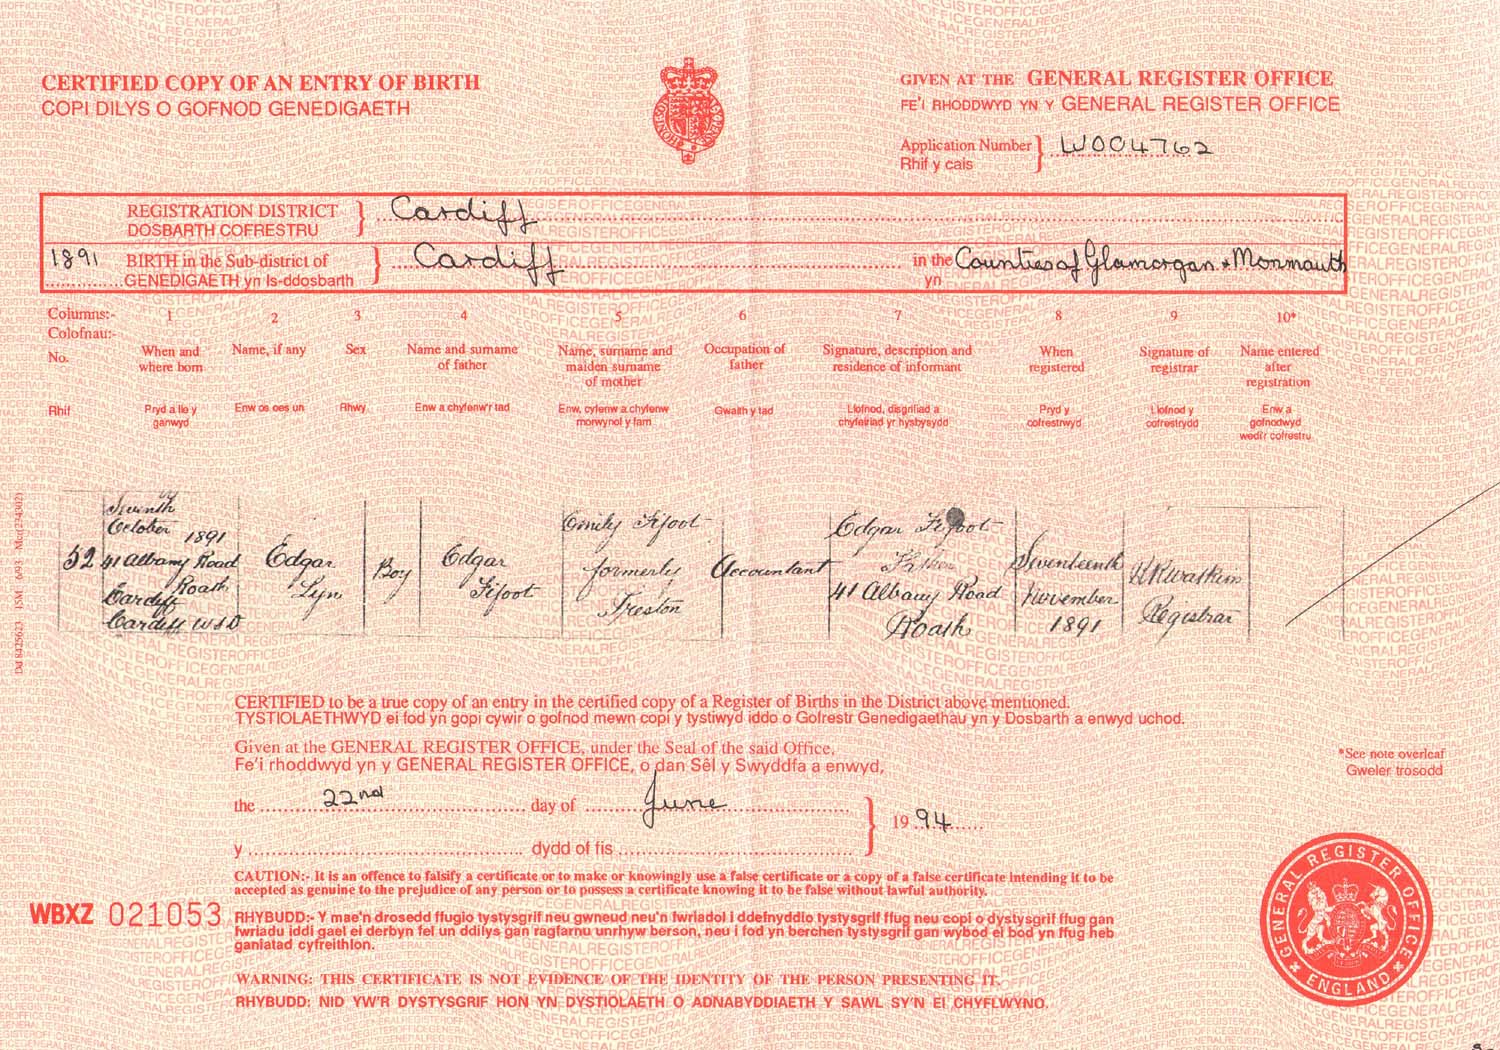 CERTIFIED COPY OF AN ENTRY OF BIRTH
COPI DILYS O GOFNOD GENEDIGAETH
GIVEN AT THE GENERAL REGISTER OFFICE
FE'I RHODDWYD YN Y GENERAL REGISTER OFFICE
Application Number W004762
Rhif y cais
REGISTRATION DISTRICT Cardiff
DOSBARTH COFRESTRU
1891 BIRTH in the Sub-district of Cardiff in the Counties of Glamorgan & Monmouth
GENEDIGAETH yn Is-ddosbarth yn
Columns:- 1 2 3 4 5 6 7 8 9 10*
Colofnau:-
No. When and where born Name, if any Sex Name and surname of father Name, surname and maiden surname of mother Occupation of father Signature, description and residence of informant When registered Signature of registrar Name entered after registration
Rhif Pryd a lle y ganwyd Enw os oes un Rhyw Enw a chyfenw'r tad Enw, cyfenw a chyfenw morwynol y fam Gwaith y tad Llofnod, disgrifiad a chyfeiriad yr hysbysydd Pryd y cofrestrwyd Llofnod y cofrestrydd Enw a gofnodwyd wedi'r cofrestru
52
Seventh
October 1891
41 Albany Road
Roath
Cardiff
Cardiff WSD
Edgar
Lyn
Boy
Edgar
Fifoot
Emily Fifoot
formerly
Preston
Accountant
Edgar Fifoot
Father
41 Albany Road
Roath
Seventeenth
November
1891
Watkins
Registrar
CERTIFIED to be a true copy of an entry in the certified copy of a Register of Births in the District above mentioned.
TYSTIOLAETHWYD ei fod yn gopi cywir o gofnod mewn copi y tystiwyd iddo o Gofrestr Genedigaethau yn y Dosbarth a enwyd uchod.
Given at the GENERAL REGISTER OFFICE, under the Seal of the said Office,
Fe'i rhoddwyd yn y GENERAL REGISTER OFFICE, o dan Sêl y Swyddfa a enwyd,
*See note overleaf
Gweler trosodd
the 22nd day of June 1994
y dydd of fis
CAUTION:- It is an offence to falsify a certificate or to make or knowingly use a false certificate or a copy of a false certificate intending it to be
accepted as genuine to the prejudice of any person or to possess a certificate knowing it to be false without lawful authority.
WBXZ 021053
RHYBUDD:- Y mae'n drosedd ffugio tystysgrif neu gwneud neu'n fwriadol i ddefnyddio tystysgrif ffug neu copi o dystysgrif ffug gan
fwriadu iddi gael ei derbyn fel un ddilys gan ragfarnu unrhyw berson, neu i fod yn berchen tystysgrif gan wybod ei bod yn ffug heb
ganiatad cyfreithlon.
WARNING: THIS CERTIFICATE IS NOT EVIDENCE OF THE IDENTITY OF THE PERSON PRESENTING IT.
RHYBUDD: NID YW'R DYSTYSGRIF HON YN DYSTIOLAETH O ADNABYDDIAETH Y SAWL SY'N EI CHYFLWYNO.
GENERAL REGISTER OFFICE
ENGLAND